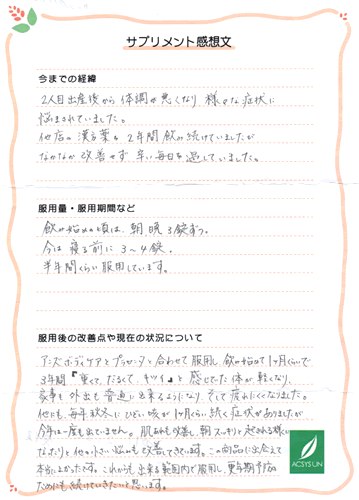 サプリメント感想文
今までの経緯
2人目出産後から体調が悪くなり様々な症状に
悩まされていました。
他店の漢方薬も2年間飲み続けていましたが
なかなか改善せず辛い毎日を過していました。
服用量・服用期間など
飲み始めの頃は、朝晩3錠ずつ。
今は寝る前に3~4錠。
半年間くらい服用しています。
服用後の改善点や現在の状況について
アンズボディケアとプラセンタと合わせて服用し、飲み始めて1ヶ月くらいで
3年間『重くて、だるくて、キツイ』と感じてた体が軽くなり、
家事も外出も普通に出来るようになり、そして疲れにくくなりました。
他にも、毎年秋冬にひどい咳が1ヶ月くらい続く症状がありましたが
今年は一度も出ていません。肌あれも改善し、朝スッキリと起きれる様に
なったりと他の小さい悩みも改善してきています。この商品に出会えて
本当によかったです。これからも出来る範囲内で服用し、更年期予防の
ためにも続けていきたいと思います。
ACSYSUN